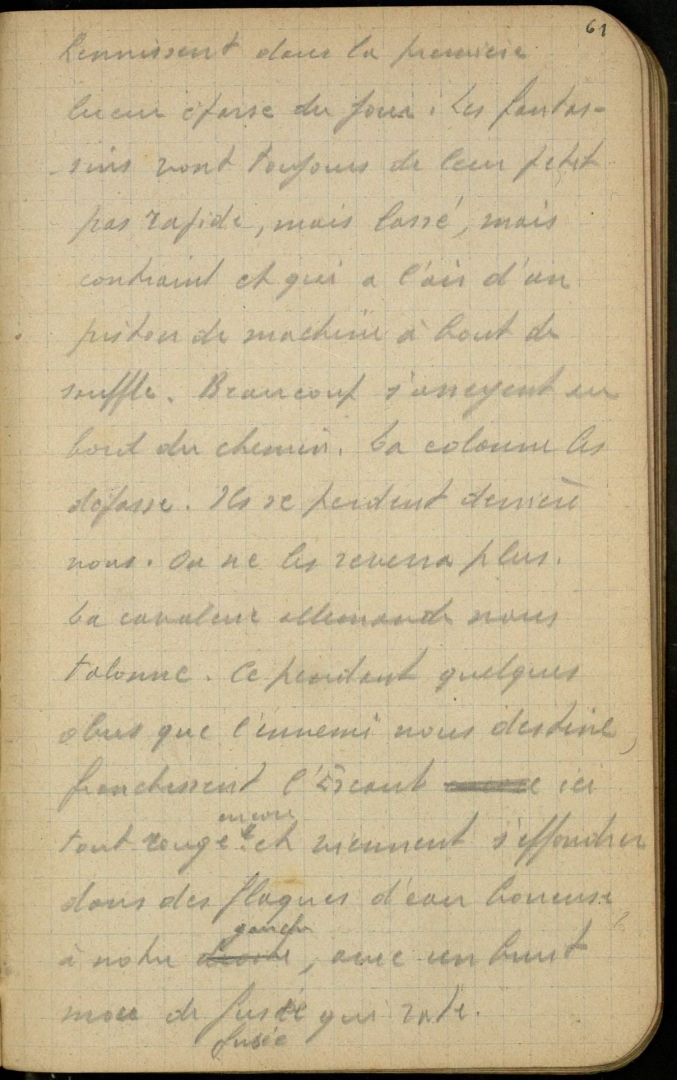 61
hennissent dans la première
lueur éparse du jour. Les fantas-
sins vont toujours de leur petit
pas rapide, mais lassé, mais
contraint et qui a l'air d'un
piston de machine à bout de
souffle. Beaucoup s'asseyent au
bord du chemin. La colonne les
dépasse. Ils se perdent derrière
nous. On ne les reverra plus.
La cavalerie allemande nous
talonne. Cependant quelques
obus que l'ennemi nous destine,
franchissent l'Escaut encore ici
encore
tout rouge et viennent s'effondrer
dans des flaques d'eau boueuse,
gauche
à notre droite, avec un bruit
mou de fusée qui rate.
fusée